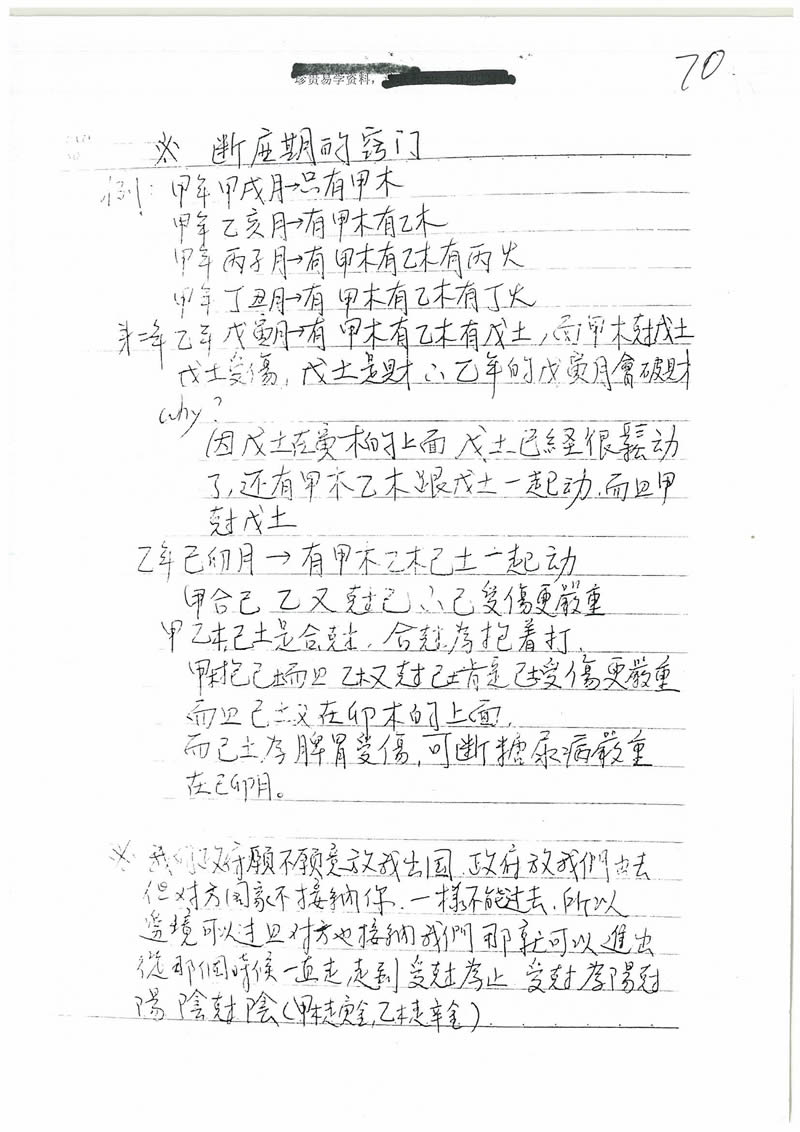 珍贵易学资料,
70
※ 断应期的窍门
例: 甲年甲戌月→只有甲木
甲年乙亥月→有甲木有乙木
甲年丙子月→有甲木有乙木有丙火
甲年丁丑月→有甲木有乙木有丁火
第二年乙年戊寅月→有甲木有乙木有戊土,而甲木尅戊土
戊土受傷,戊土是財∴乙年的戊寅月會破財
why?
因戊土在寅木的上面 戊土已経很鬆动
了,还有甲木乙木跟戊土一起动.而且甲
尅戊土
乙年己卯月→有甲木乙木己土一起动
甲合己 乙又尅己∴己受傷更嚴重
甲乙木己土是合尅.合尅為抱着打.
甲木抱己土而且乙木又尅己土肯定己土受傷更嚴重
而且己土又在卯木的上面.
而己土為脾胃受傷,可断糖尿病嚴重
在己卯月。
※ 我们政府願不願意放我出国.政府放我們出去
但对方国家不接納你.一樣不能过去.所以
邊境可以过且对方也接納我們那就可以進出
從那個時候一直走,走到受尅為止 受尅為陽尅
陽 陰尅陰(甲木走庚金,乙木走辛金)